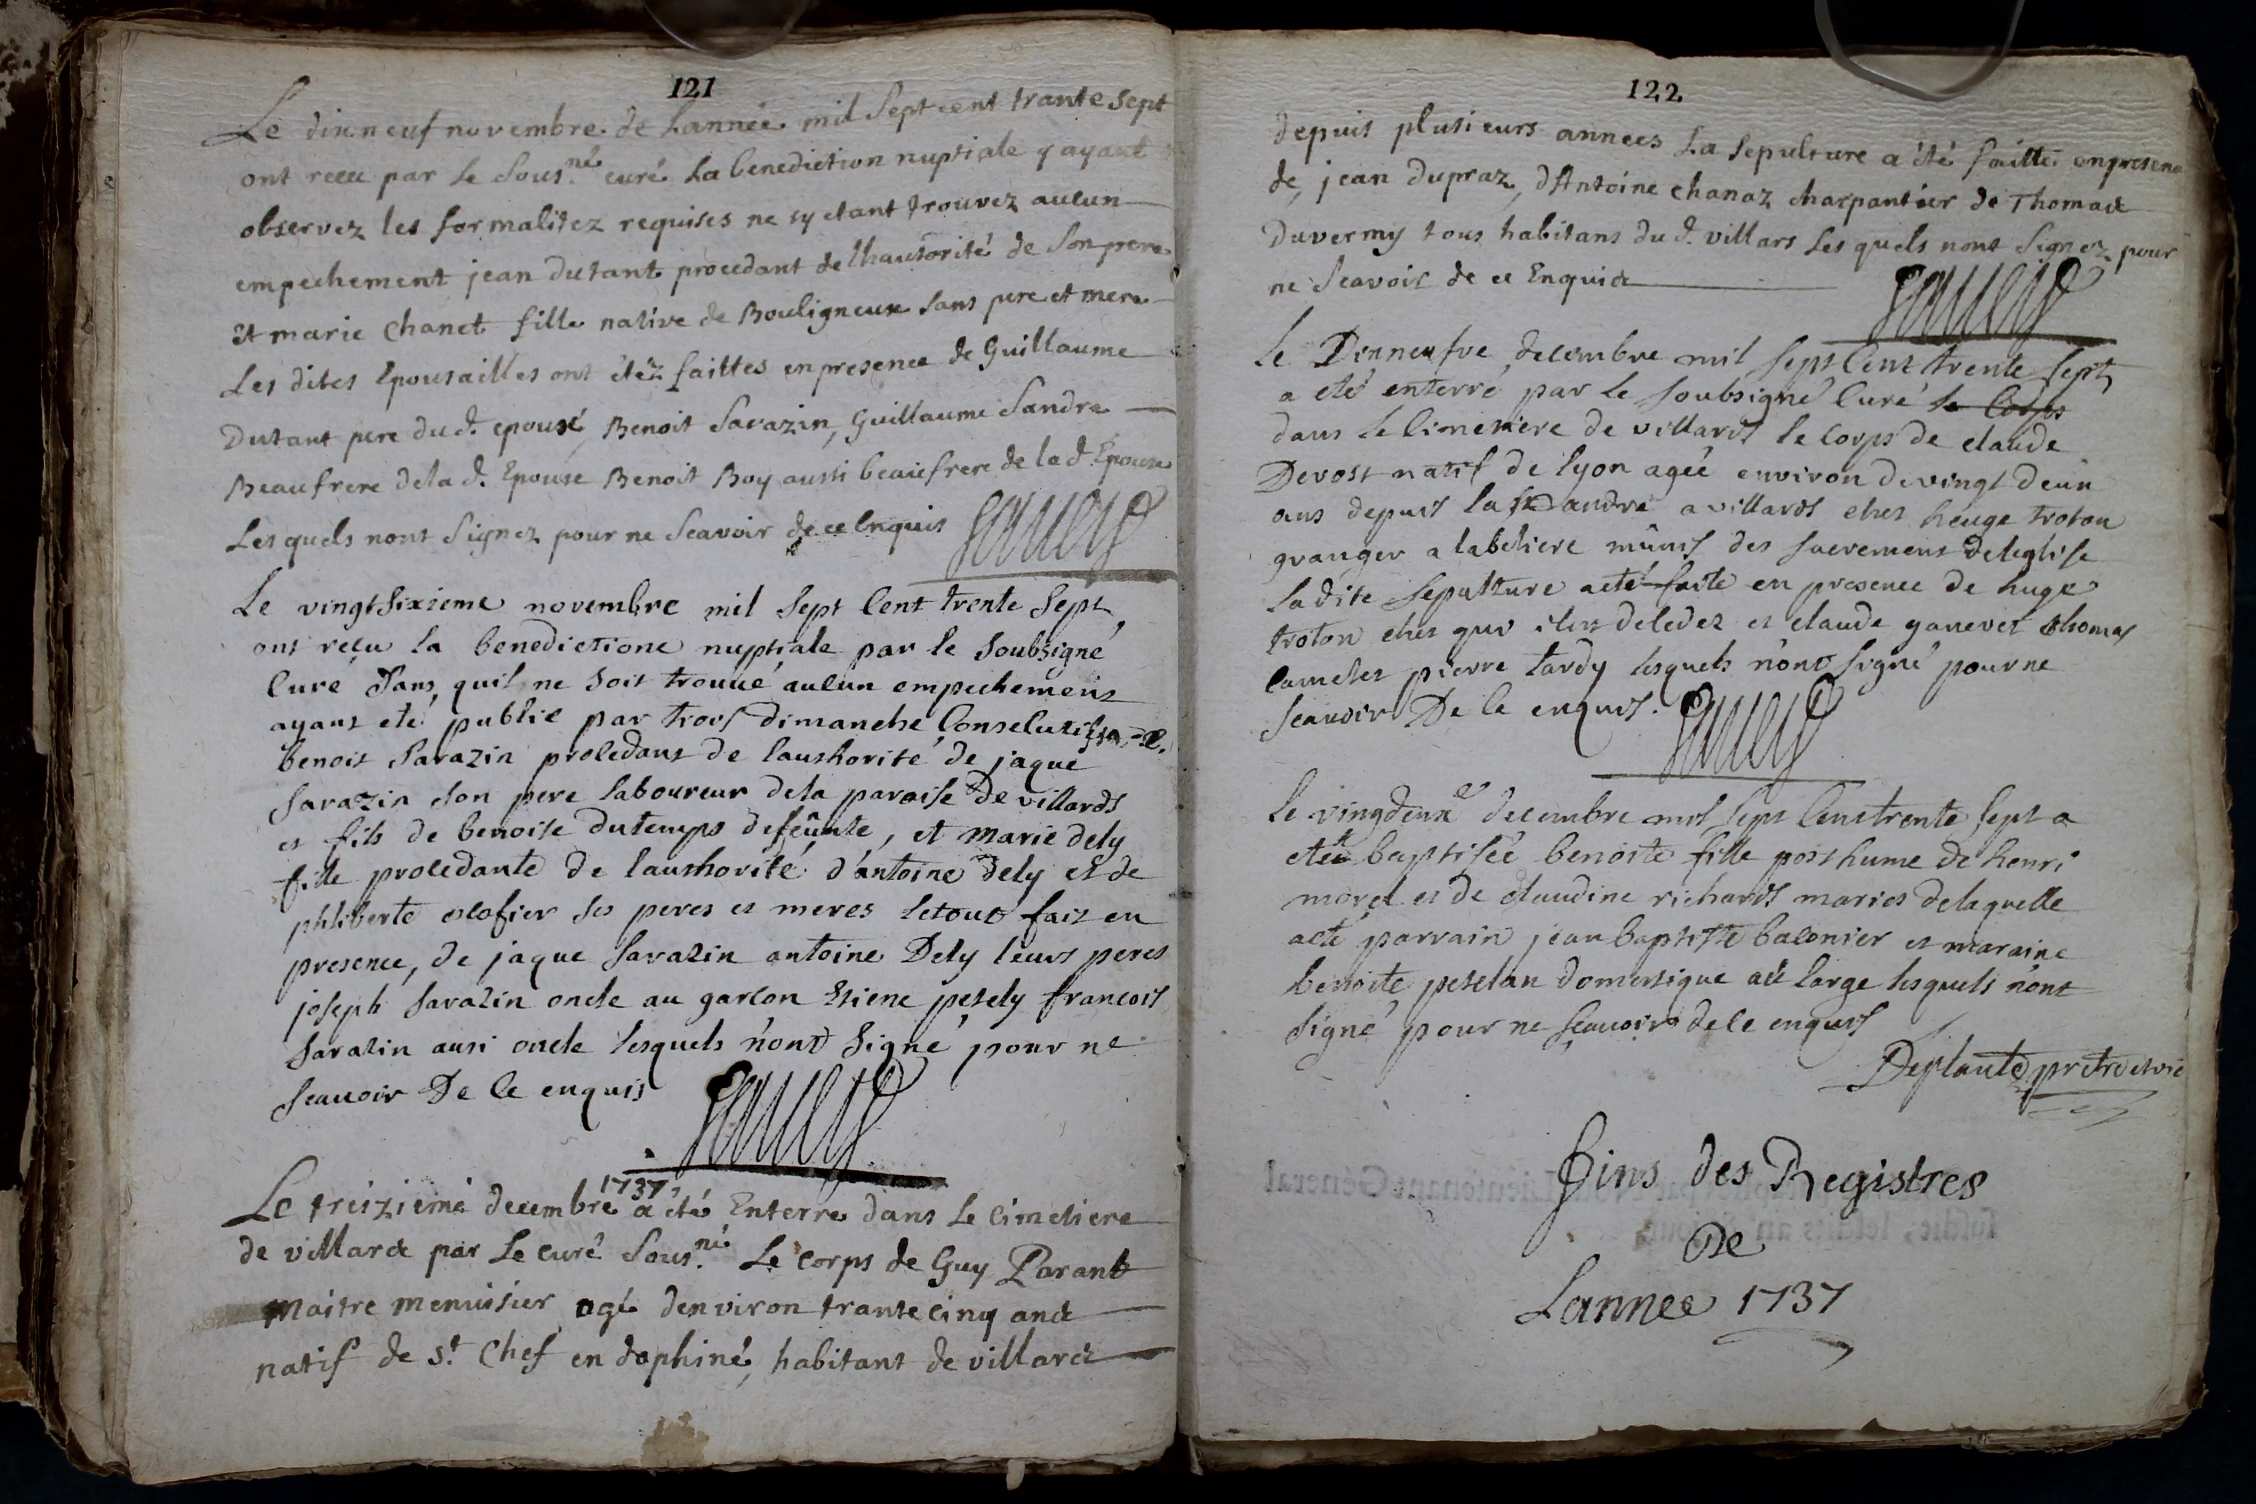 121
Le dixneuf novembre de Lannée mil Sept cent trante sept
ont receu par le Sous.né curé La benediction nuptiale y ayant
observez les formalitez requises ne sy etant trouvez aucun
empechement jean dutant procedant de lhautorité de Son pere
et marie Chanet fille native de Bouligneux sans pere et mere
Les dites Epousailles ont étéz faittes en presence de Guillaume
Dutant pere du d. epousé, Benoit Sarazin, Guillaume Sandre
Beaufrere de la d. Epouse Benoit Boy aussi beaufrere de la d. Epouse
Les quels nont Signez pour ne Scavoir de ce Enquis
Le vingtsixieme novembre mil sept Cent trente sept
ont reçu la benedictione nuptiale par le soubsigné
Curé sans quil ne soit trouué aucun empechement
ayant eté publié par trois dimanche Consecutif
benoit Sarazin procedant de lauthorité de jaque
Sarazin son pere laboureur de la paroise de villards
et fils de benoise dutemps defeunte, et marie dely
fille procedante de lauthorité d'antoine dely et de
phliberte ses peres et meres letout fait en
presence, de jaque Sarazin antoine Dely leurs peres
joseph Sarazin oncle au garcon Etiene petely francois
Sarazin ausi oncle lesquels n'ont Signé pour ne
scauoir De Ce enquis
1737,
Le treizieme decembre a été Enterre dans Le Cimetiere
de villard par Le curé Sous.né Le Corps de Guy Parant
Maitre menuisier agé denviron trante cinq ans
natif de St. Chef en dophiné, habitant de villard
122
depuis plusieurs années La Sepulture a été faitte en presence
de, jean dupraz, d'Antoine Chanaz charpantier de Thomas
Duvermy tous habitans du d. villars Les quels nont Signez pour
ne Scavoir de ce Enquis
le Dixneufve decembre mil sept Cent trente sept
a eté enterré par le soubsigné Curé le Corps
dans le Cimetiere de villards le corps de claude
Devost natif de lyon ageé environ de vingt deux
ans depuis la st andré a villards ches heuge troton
granger a labeliere mûnis des sacremens de leglise
ladite sepulture a eté faite en presence de huge
troton ches qui il est decedez et claude ganevet thomas
pierre tardy lesquels n'ont signé pour ne
scauoir De Ce enquis.
le vingdeuxe decembre mil sept Cent trente sept a
eteé baptiseé benoite fille posthume de henri
morel et de claudine richards maries de laquelle
a eté parrain jean baptiste baconier et maraine
benoite petelan domestique au large lesquels n'ont
signé pour ne scauoir de ce enquis
Deplante, prtre et vic
Fins des Registres
De
Lannee 1737